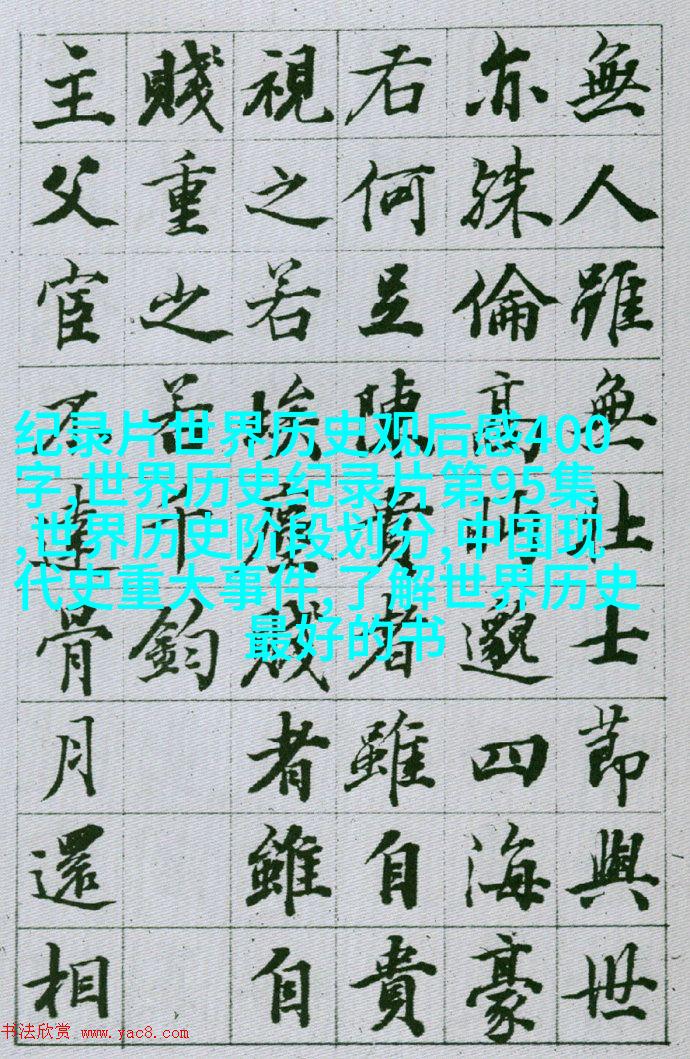 無人雖無壯士節與世
亦殊倫高眄邈四海豪
右何足陳貴者雖自貴
視之若埃塵賤者雖自
賤重之若千鈞
主父宦不達骨月還相
纪录片世界历史观后感400
字,世界历史纪录片第95集
,世界历史阶段划分,中国现
代史重大事件,了解世界历史
最好的书
书法欣赏 www.yac8.com